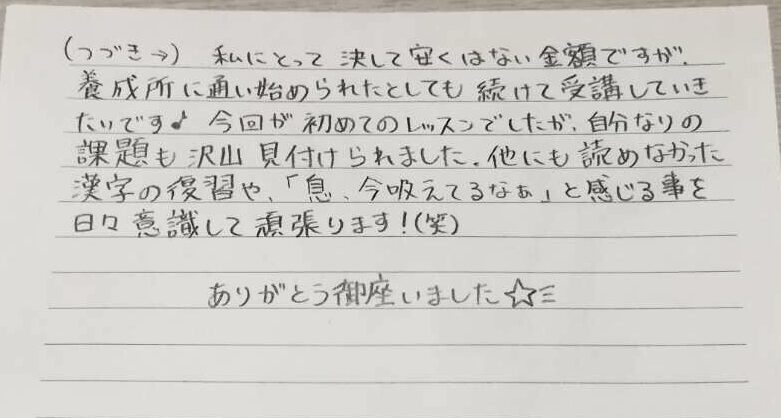 (つづき→) 私にとって 決して安くはない金額ですが、
養成所に通い始められたとしても 続けて受講していき
たいです♪ 今回が 初めてのレッスンでしたが、自分なりの
課題も 沢山 見付けられました。他にも 読めなかった
漢字の復習や、「息、今吸えてるなぁ」と感じる事を
日々 意識して 頑張ります!(笑)
ありがとう御座いました☆ミ